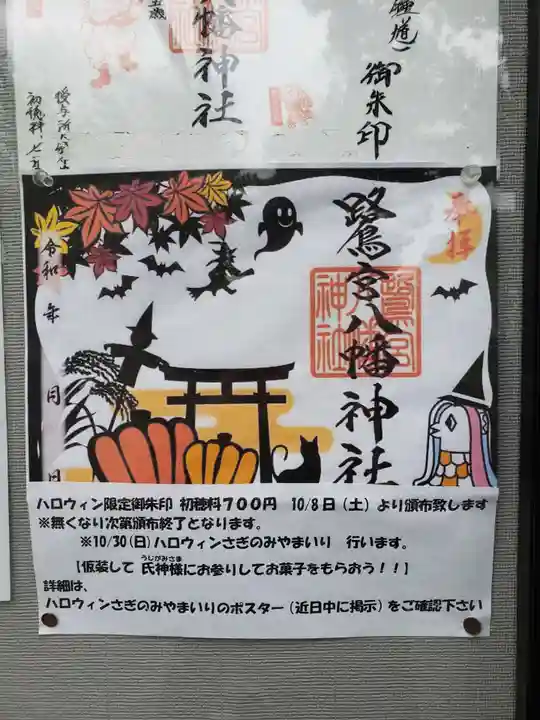 幡神社
御朱印
奉拝
鷺宮八幡神社
令和 年 月 日
ハロウィン限定御朱印 初穂料700円 10/8日(土)より頒布致します
※無くなり次第頒布終了となります。
※10/30(日)ハロウィンさぎのみやまいり 行います。
うじがみさま
【仮装して 氏神様にお参りしてお菓子をもらおう!!】
詳細は、
ハロウィンさぎのみやまいりのポスター(近日中に掲示)をご確認下さい